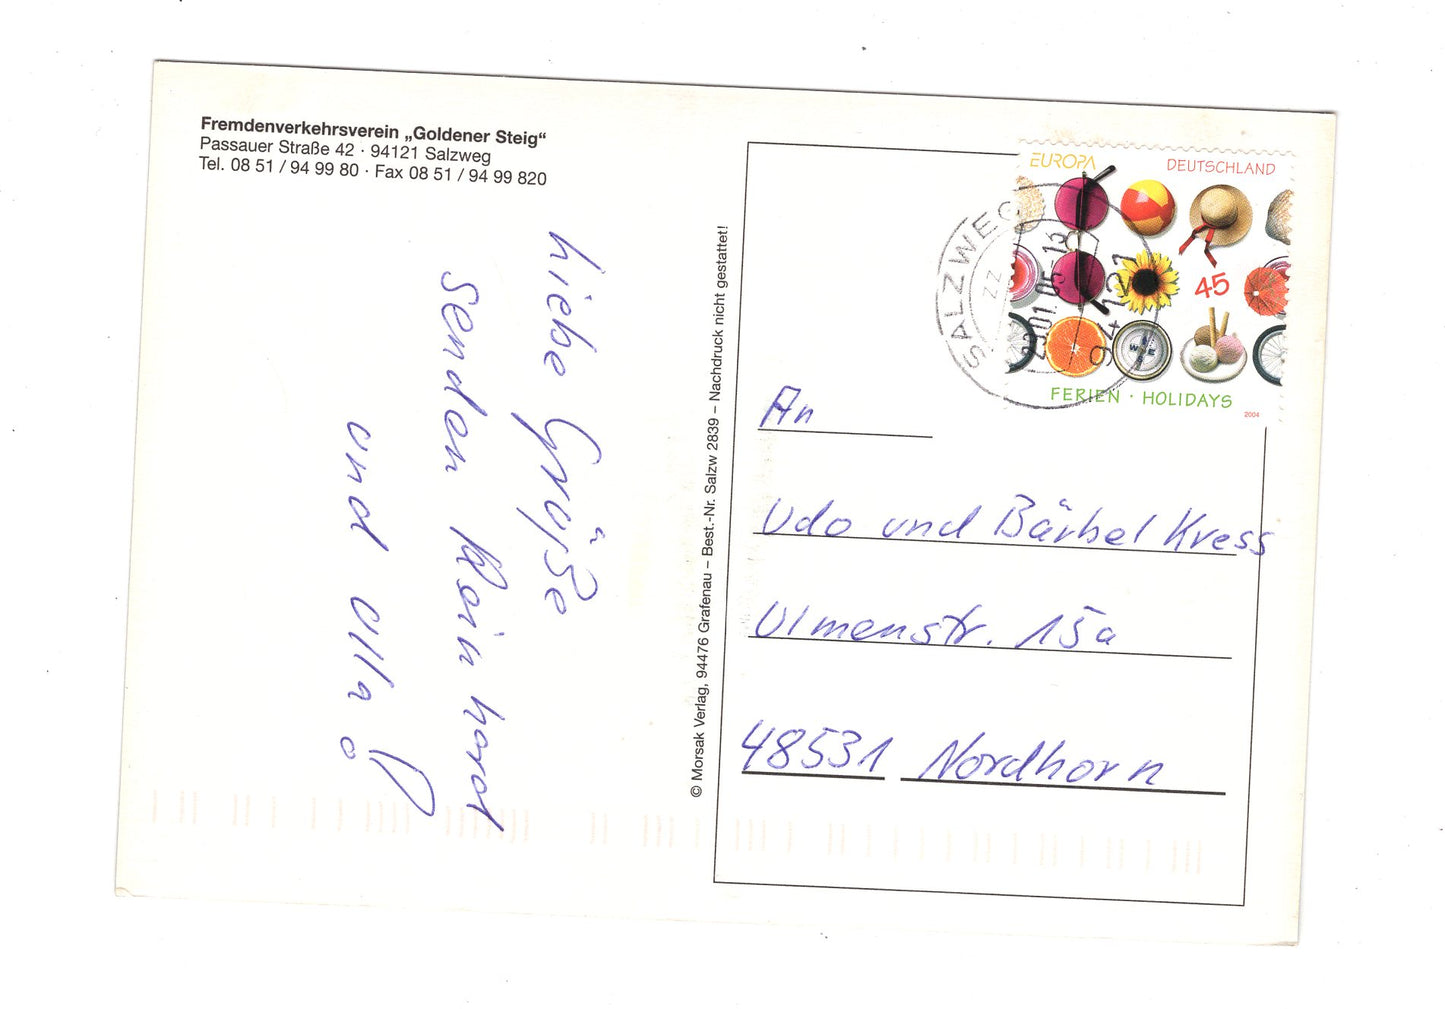 Fremdenverkehrsverein „Goldener Steig“
Passauer Straße 42 · 94121 Salzweg
Tel. 08 51 / 94 99 80 · Fax 08 51 / 94 99 820
Liebe Grüße
senden Reinhard
und Ulla!
© Morsak Verlag, 94476 Grafenau – Best.-Nr. Salzw 2839 – Nachdruck nicht gestattet!
EUROPA
DEUTSCHLAND
45
FERIEN · HOLIDAYS
2004
SALZWEG
ZZ
94121
An
Udo und Bärbel Kress
Ulmenstr. 15a
48531 Nordhorn